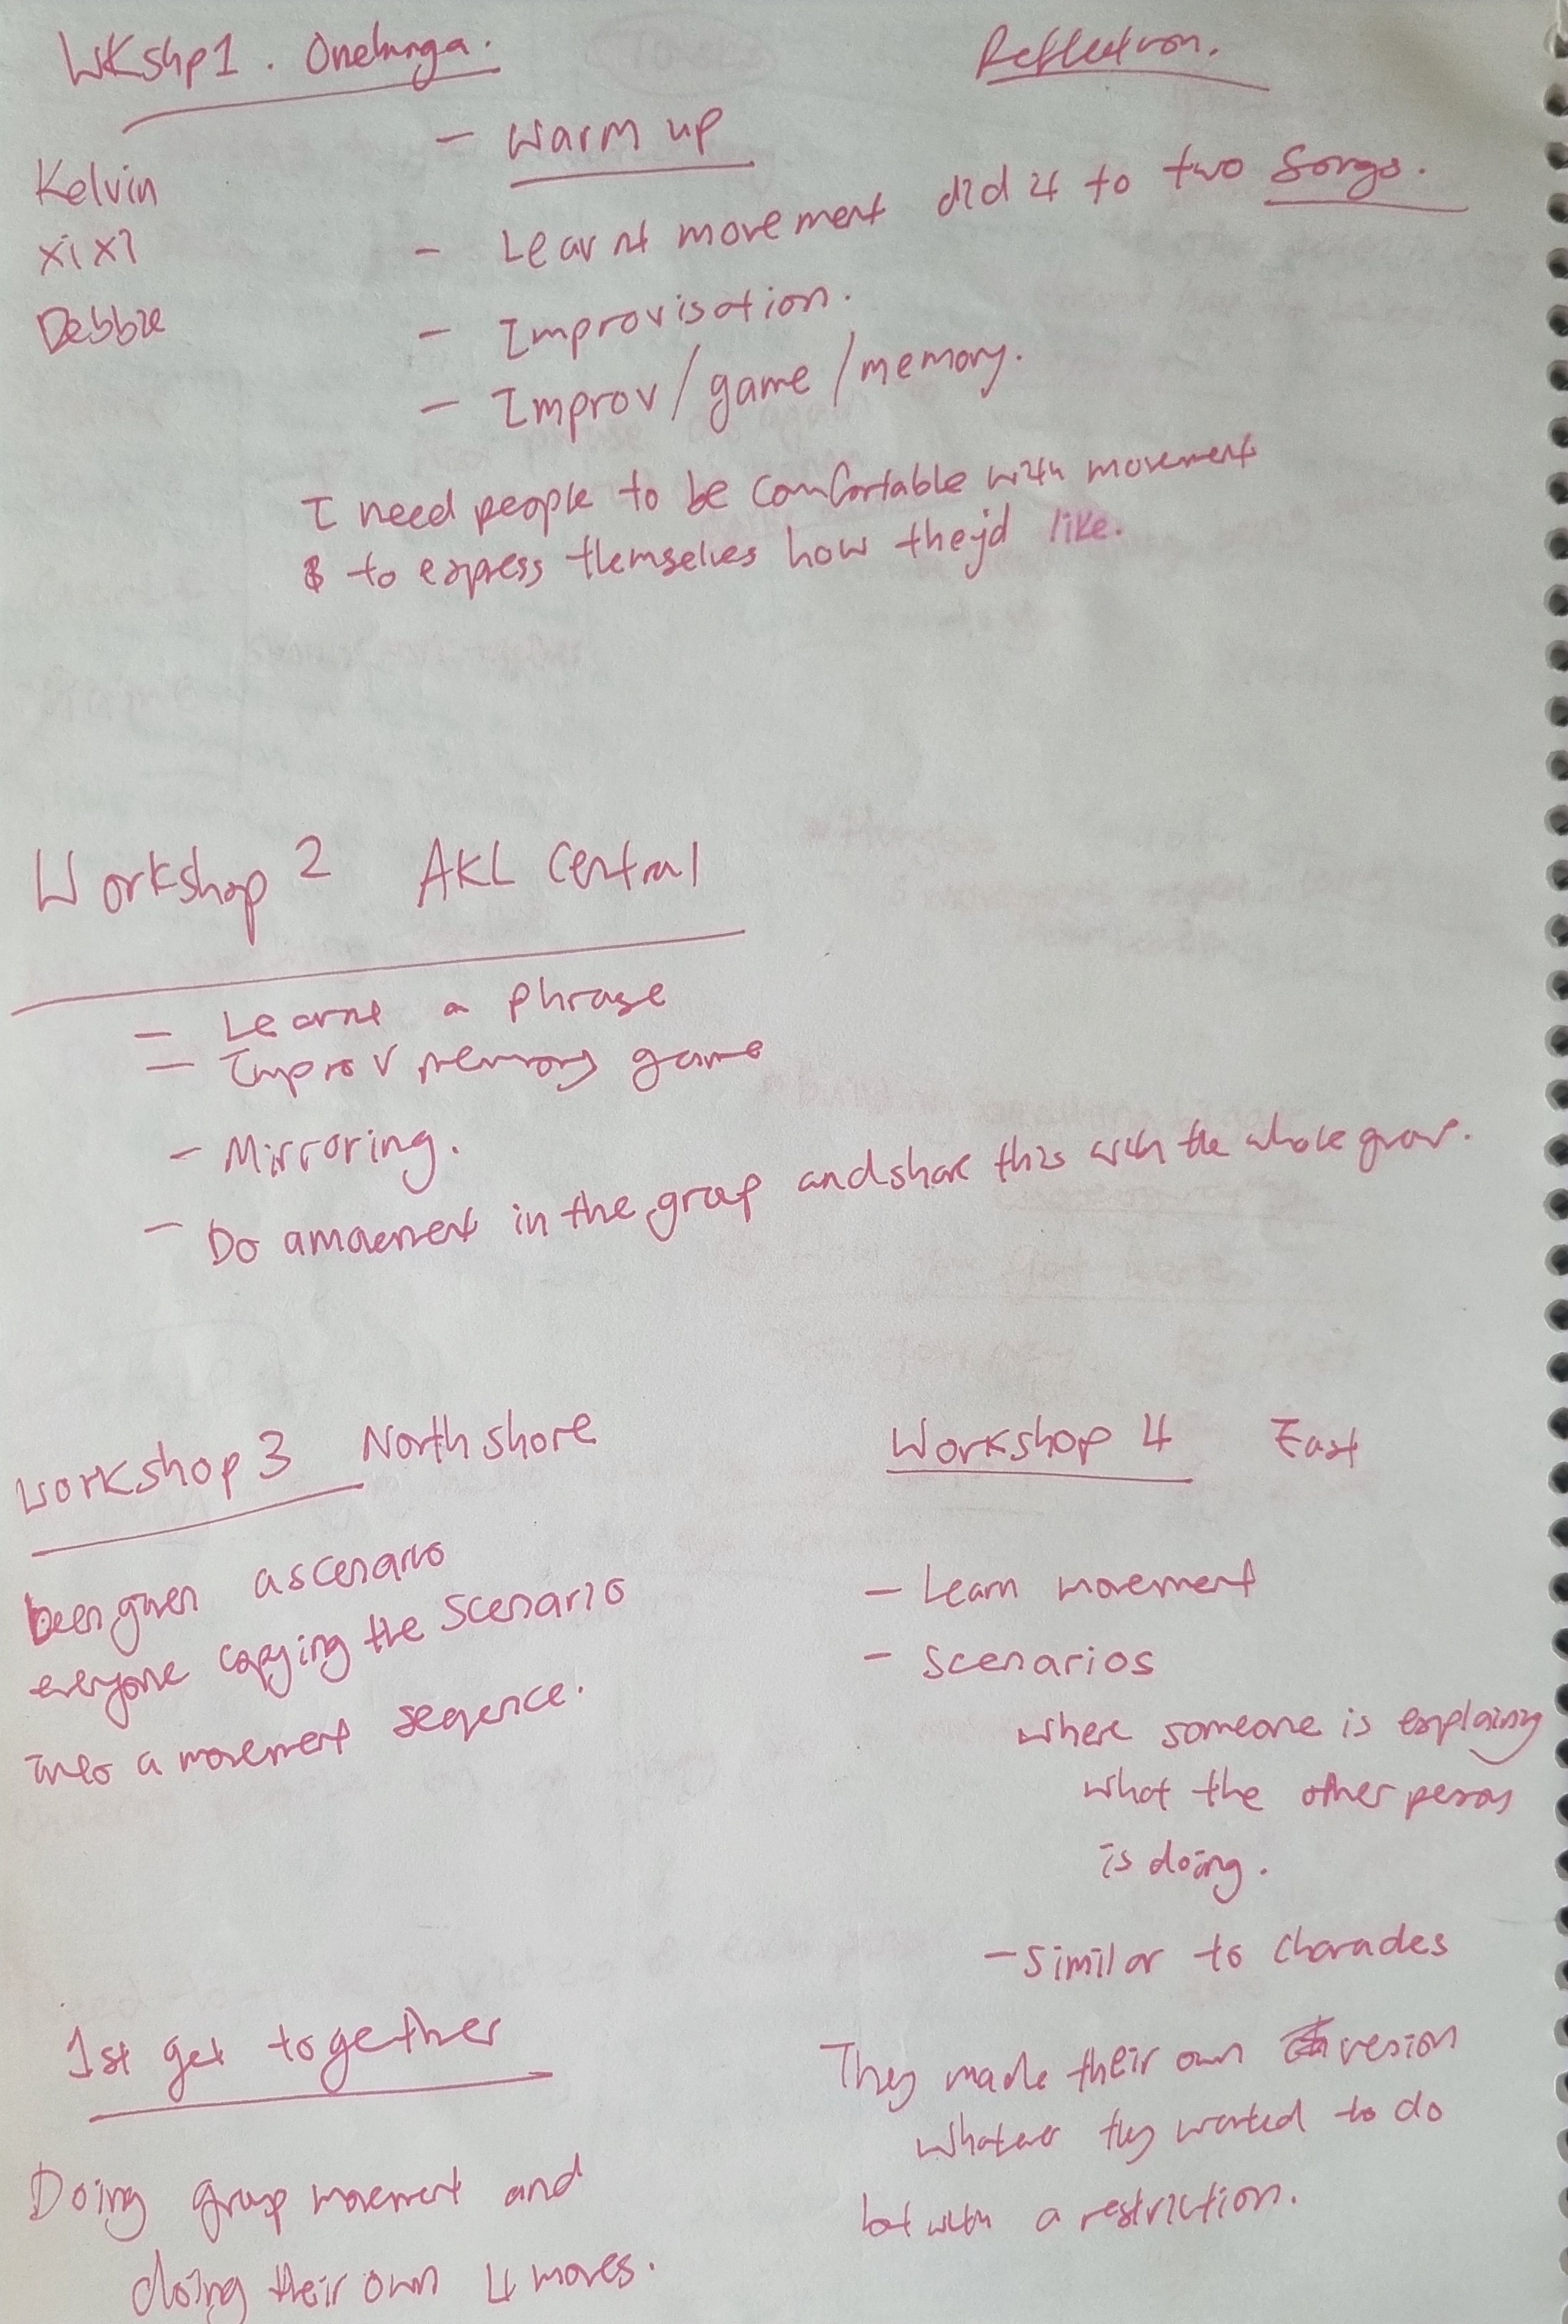 WKshp1. Onehunga.
Reflection.
Kelvin
xixi
Debbie
- Warm up
- Learnt movement did it to two songs.
- Improvisation.
- Improv/game/memory.
I need people to be comfortable with movement
& to express themselves how they'd like.
Workshop 2 AKL Central
- Learnt a phrase
- Improv memory game
- Mirroring.
- Do a movement in the group and share this with the whole group.
Workshop 3 North shore
been given a scenario
everyone copying the scenario
into a movement sequence.
Workshop 4 East
- Learn movement
- Scenarios
where someone is explaining
what the other person
is doing.
- Similar to charades
They made their own vesion
whatever they wanted to do
but with a restriction.
1st get together
Doing group movement and
doing their own 4 moves.